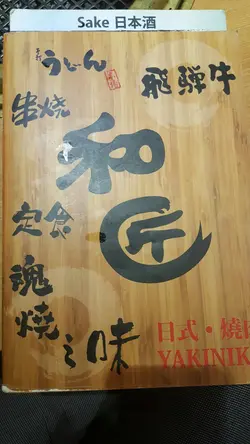 Sake 日本酒
手打
うどん
飛騨牛
串焼
和匠
定食
魂
燒
之味
日式・燒
YAKINIK